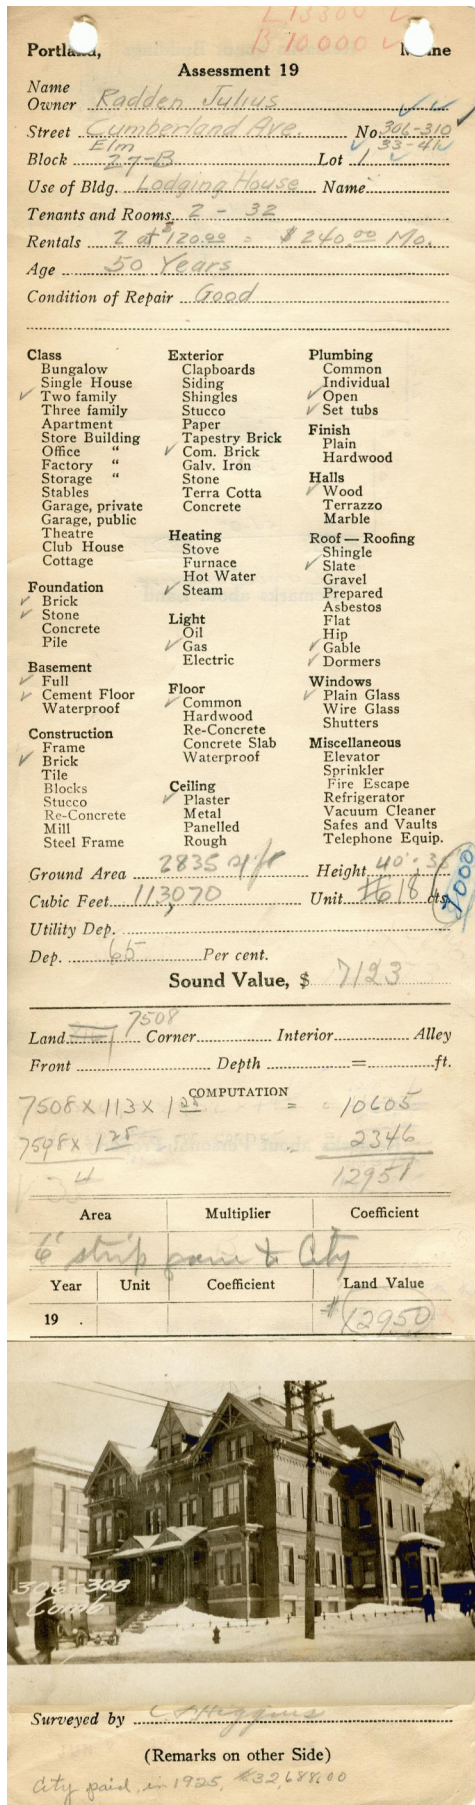 L 13300
B 10,000
Portland, Maine
Assessment 19
Name
Owner Radden Julius
Street Cumberland Ave. No 306-310
Elm 33-41
Block 27-B Lot 1
Use of Bldg. Lodging House Name
Tenants and Rooms 2 - 32
Rentals 2 at $120.00 = $240.00 Mo.
Age 50 Years
Condition of Repair Good
Class
Bungalow
Single House
✓ Two family
Three family
Apartment
Store Building
Office "
Factory "
Storage "
Stables
Garage, private
Garage, public
Theatre
Club House
Cottage
Foundation
✓ Brick
✓ Stone
Concrete
Pile
Basement
✓ Full
✓ Cement Floor
Waterproof
Construction
Frame
✓ Brick
Tile
Blocks
Stucco
Re-Concrete
Mill
Steel Frame
Exterior
Clapboards
Siding
Shingles
Stucco
Paper
Tapestry Brick
✓ Com. Brick
Galv. Iron
Stone
Terra Cotta
Concrete
Heating
Stove
Furnace
Hot Water
✓ Steam
Light
Oil
✓ Gas
Electric
Floor
✓ Common
Hardwood
Re-Concrete
Concrete Slab
Waterproof
Ceiling
✓ Plaster
Metal
Panelled
Rough
Plumbing
Common
Individual
✓ Open
✓ Set tubs
Finish
Plain
Hardwood
Halls
✓ Wood
Terrazzo
Marble
Roof — Roofing
Shingle
✓ Slate
Gravel
Prepared
Asbestos
Flat
Hip
✓ Gable
✓ Dormers
Windows
✓ Plain Glass
Wire Glass
Shutters
Miscellaneous
Elevator
Sprinkler
Fire Escape
Refrigerator
Vacuum Cleaner
Safes and Vaults
Telephone Equip.
Ground Area 2835 Height 40'
Cubic Feet 113,070 Unit 18 cts.
Utility Dep.
Dep. 65 Per cent.
Sound Value, $ 7123
7508
Land Corner Interior Alley
Front Depth = ft.
COMPUTATION
7508 x 113 x 1 25 = 10605
7508 x 1 25 2346
4 12951
Area Multiplier Coefficient
6' strip to City
Year Unit Coefficient Land Value
19 . $12950
306-308
Cumb
Surveyed by Higgins
(Remarks on other Side)
City paid in 1925, $32,688.00